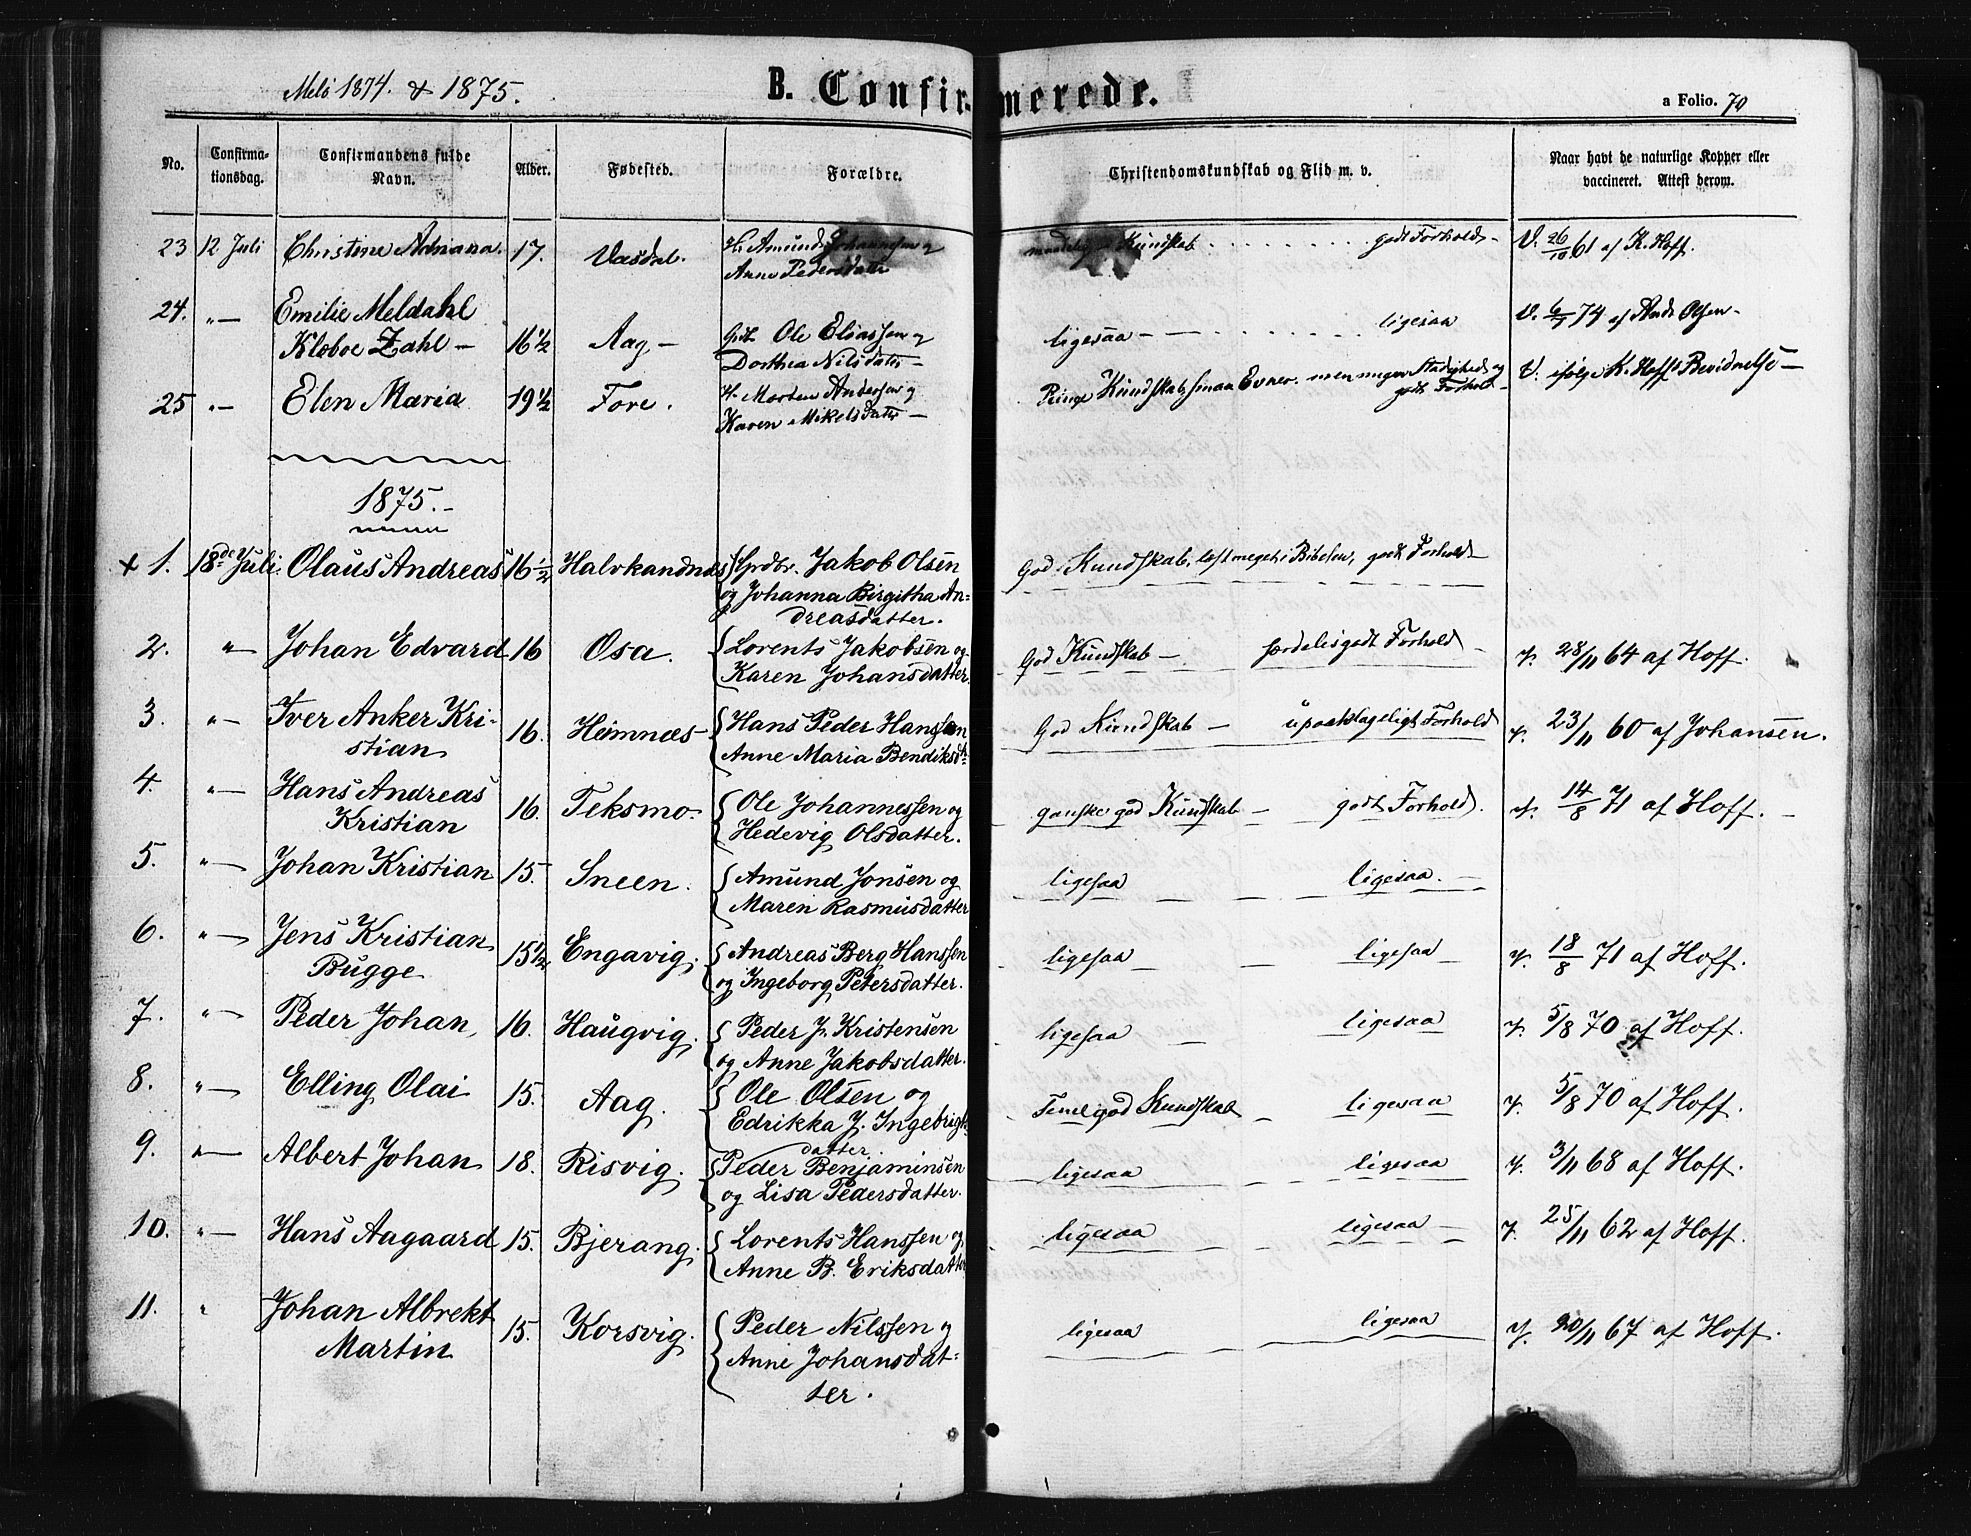 Melö 1874. & 1875.
B. Confirmerede.
a Folio. 70
No.
Confirma-
tionsdag.
Confirmandens fulde
Navn.
Alder.
Fødested.
Forældre.
Christendomskundskab og Flid m. v.
Naar havt de naturlige Kopper eller
vaccineret. Attest derom.
23 12 Juli Christine Adriana. 17. Vasdal. H. Amund Johannesen og
Anne Pedersdatter
maadelig Kundskab godt Forhold- V. 26/10 61 af K. Hoff.
24. "— Emilie Meldahl
Kleboe Zahl — 16½ Aag — Ole Eliassen og
Dorthea Nilsdatter —
ligesaa — ligesaa V. 6/7 74 af And. Olsen -
25 "— Elen Maria 19½ Fore. H. Morten Andersen og
Karen Mikelsdatter —
Ringe Kundskab, smaa Evner, men megen Stadighed og
godt Forhold - V. ifølge K. Hoffs Bevidnelse —
1875. -
+ 1. 18de Juli. Olaus Andreas 16½ Halvkandnæs Grdbr. Jakob Olsen
og Johanna Birgitha An-
dreasdatter.
God Kundskab, læst meget i Bibelen, godt Forhold
2. "— Johan Edvard 16 Osa. Lorents Jakobsen og
Karen Johansdatter.
God Kundskab — særdeles godt Forhold - v. 28/11 64 af Hoff.
3. "— Iver Anker Kri-
stian 16. Heimnæs - Hans Peder Hanssen
Anne Maria Bendiksdt.
God Kundskab — upaaklageligt Forhold v. 23/11 60 af Johansen.
4. "— Hans Andreas
Kristian 16. Teksmo - Ole Johannessen og
Hedevig Olsdatter.
ganske god Kundskab — godt Forhold. v. 14/8 71 af Hoff. -
5. "— Johan Kristian 15. Sneen. Amund Jonsen og
Maren Rasmusdatter
ligesaa ligesaa. -
6. "— Jens Kristian
Bugge 15½ Engavig. Andreas Berg Hanssen
og Ingeborg Petersdatter.
ligesaa — ligesaa — v. 18/8 71 af Hoff.
7. "— Peder Johan 16. Haugvig. Peder J. Kristensen
og Anne Jakobsdatter.
ligesaa — ligesaa v. 5/8 70 af Hoff.
8. "— Elling Olai 15. Aag. Ole Olsen og
Edrikka J. Ingebrigt-
datter.
Temmelig god Kundskab — ligesaa v. 5/8 70 af Hoff.
9. "— Albert Johan 18. Risvig. Peder Benjaminsen
og Lisa Pedersdatter.
ligesaa ligesaa v. 3/11 68 af Hoff.
10. "— Hans Aagaard 15. Bjerang. Lorents Hanssen og
Anne B. Eriksdatter
ligesaa ligesaa — v. 25/11 62 af Hoff.
11. " Johan Albrekt
Martin 15. Korsvig. Peder Nilssen og
Anne Johansdat-
ter.
ligesaa ligesaa v. 20/11 67 af Hoff.